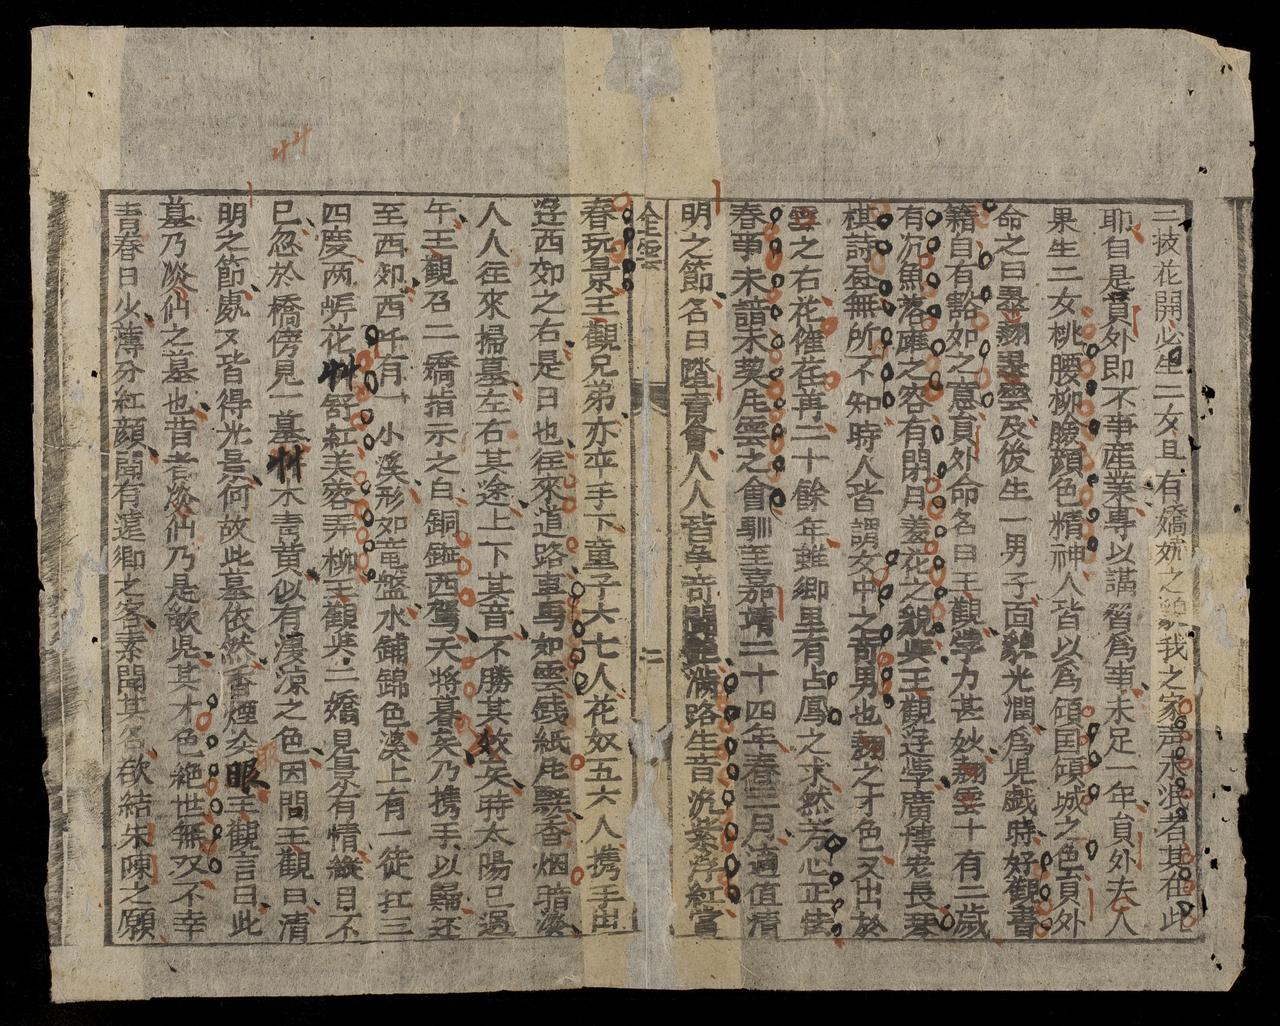 三技花開必生二女且有嬌姹之貌我之家声永泯者其在此
耶自是員外即不事産業專以謹習為事未足一年員外夫人
果生二女桃腰柳臉顔色精神人皆以為傾国傾城之色員外
命之曰翠翹翠雲及後生一男子面貌光潤為児戯時好觀書
籍自有豁如之意員外命名曰王觀学力甚妙翹雲十有二歳
有沉魚落雁之容有閉月羞花之貌與王觀遊学廣傳老長琴
棋詩画無所不知時人皆謂女中之奇男也翹之才色又出於
雲之右花僅在苒二十餘年雖鄉里有占鳳之求然芳心正怯
春事未諳未契尾雲之會馴至嘉靖二十四年春三月適值清
明之節名曰踏青會人人皆争奇鬪艶濮路生音沉紫浮紅當
全雲
二
春玩景王觀兄弟亦卒手下童子六七人花奴五六人携手出
遊西郊之右是日也往來道路車馬如雲銭紙尾飄香烟暗淡
人人往來掃墓左右其途上下其音不勝其数矣時太陽已過
午王觀召二嬌指示之曰銅鉦西駕天將暮矣乃携手以歸还
至西郊西阡有一小溪形如竜盤水鋪錦色溪上有一徒杠三
四度兩岸花艸舒紅芙蓉弄柳王觀與二嬌見景有情縱目不
已忽於橋傍見一墓艸木青黄似有淒凉之色因問王觀曰清
明之節處又皆得光景何故此墓依然香煙仒眼王觀言曰此
墓乃淡仙之墓也昔者淡仙乃是歌児其才色絶世無双不幸
青春日少薄分紅顔聞有遠鄉之客素聞其名欲結朱陳之願